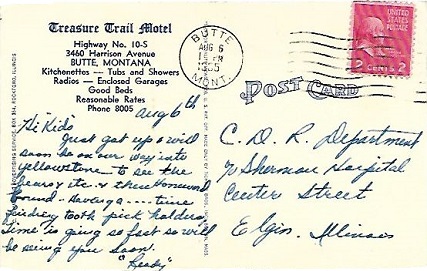 Treasure Trail Motel
Highway No. 10-S
3460 Harrison Avenue
BUTTE, MONTANA
Kitchenettes — Tubs and Showers
Radios — Enclosed Garages
Good Beds
Reasonable Rates
Phone 8005
BUTTE
AUG 6
MONT.
POST CARD
2 CENTS 2
Aug 6th
Hi Kids
Just got up & will
soon be on our way into
Yellowstone - to see the
bears etc. & then homeward
bound. Having a ---- time
finding tooth pick holders
Time is going so fast so will
be seeing you soon.
C. D. R. Department
c/o Sherman Hospital
Center Street
Elgin, Illinois